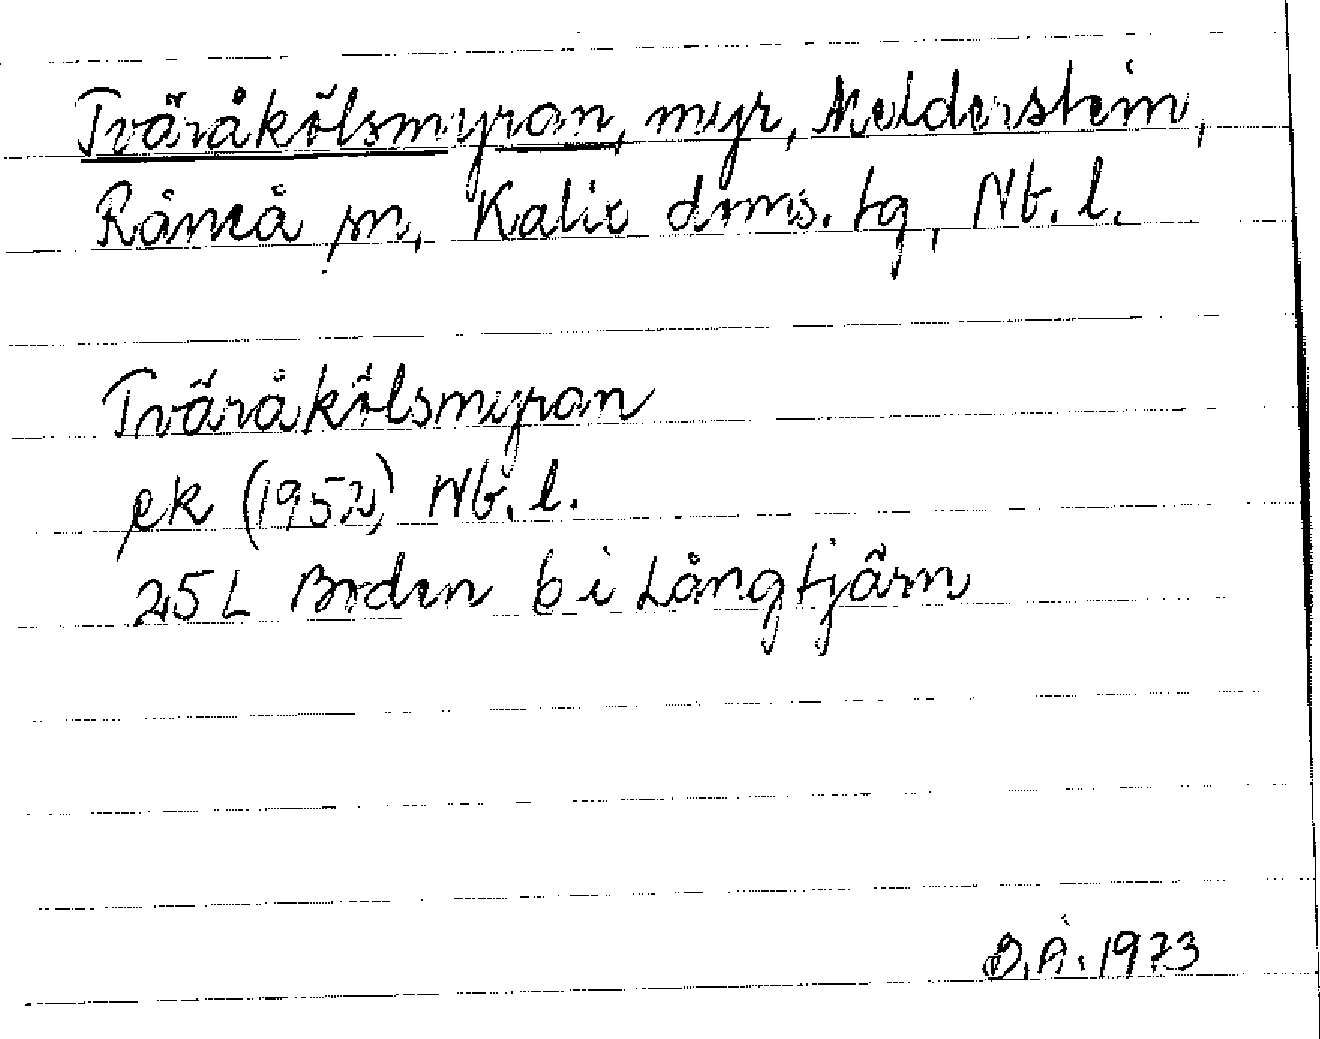 Tväråkölsmyran, myr, Melderstein,
Råneå sn, Kalix doms. tg, Nb. l.
Tväråkölsmyran
ek (1952) Nb. l.
25 L Boden b i Långtjärn
B.Å. 1973